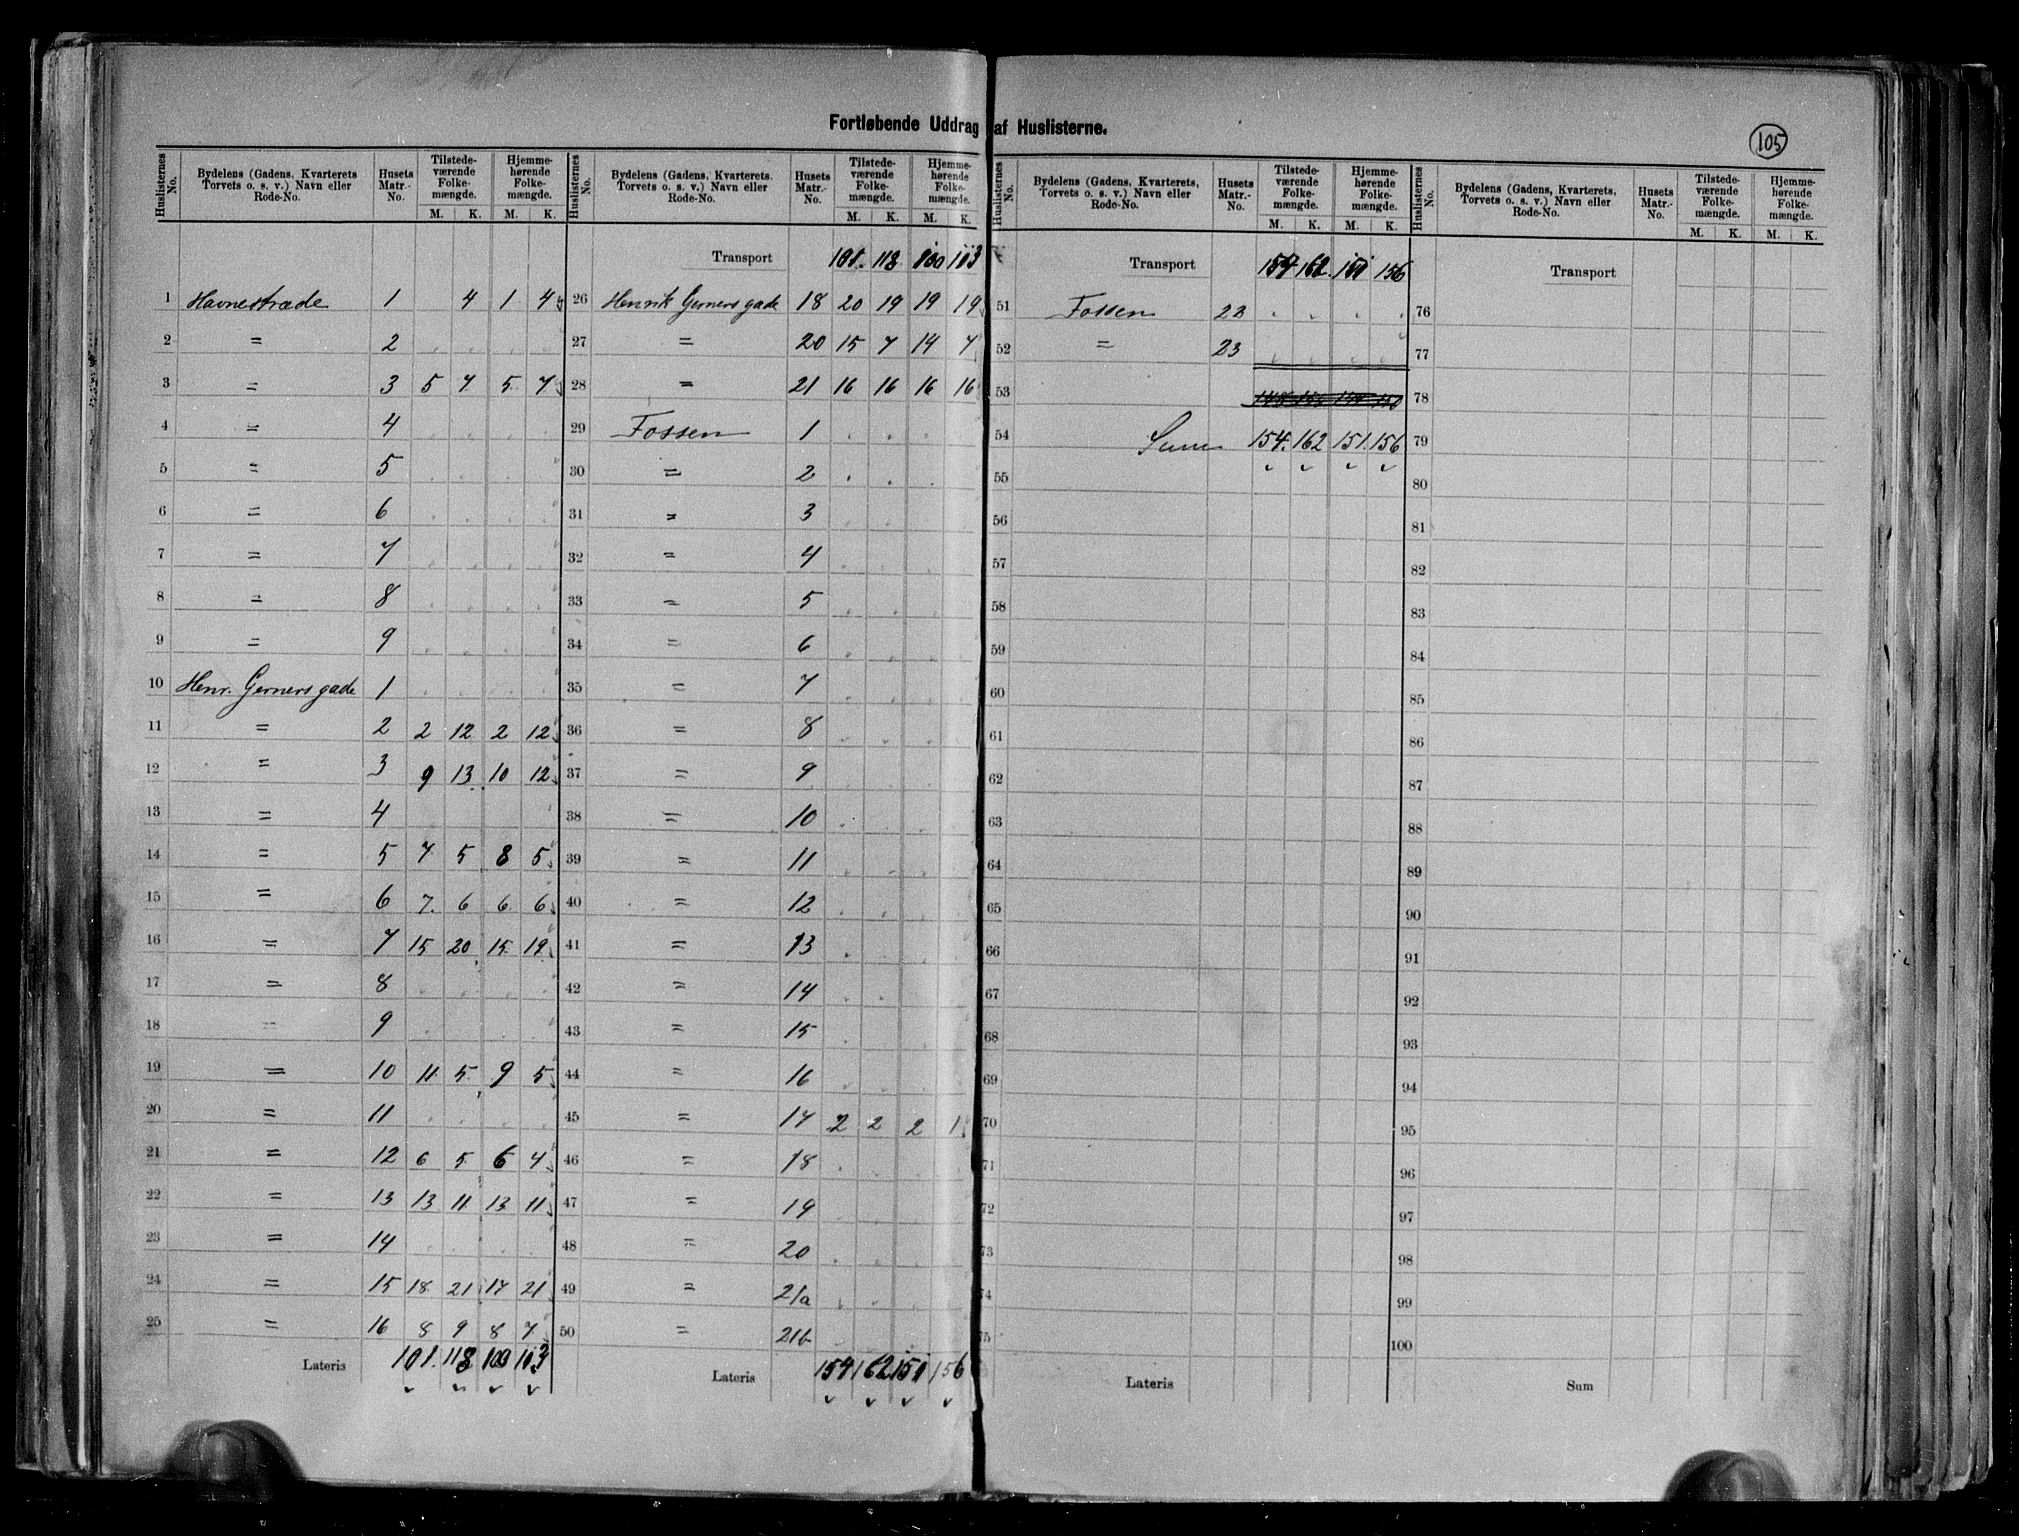 Fortløbende Uddrag af Huslisterne.
105
Huslisternes No. Bydelens (Gadens, Kvarterets Torvets o. s. v.) Navn eller Rode-No. Husets Matr.-No. Tilstedeværende Folkemængde. M. K. Hjemmehørende Folkemængde. M. K.
1 Havnestræde 1 4 1 4
2 = 2
3 = 3 5 7 5 7
4 = 4
5 = 5
6 = 6
7 = 7
8 = 8
9 = 9
10 Henr. Gerners gade 1
11 = 2 2 12 2 12
12 = 3 9 13 10 12
13 = 4
14 = 5 7 5 8 5
15 = 6 7 6 6 6
16 = 7 15 20 15 19
17 = 8
18 = 9
19 = 10 11 5 9 5
20 = 11
21 = 12 6 5 6 4
22 = 13 13 11 13 11
23 = 14
24 = 15 18 21 17 21
25 = 16 8 9 8 7
Lateris 101 118 100 113
Huslisternes No. Bydelens (Gadens, Kvarterets. Torvets o. s. v.) Navn eller Rode-No. Husets Matr.-No. Tilstedeværende Folkemængde. M. K. Hjemmehørende Folkemængde. M. K.
Transport 101 118 100 113
26 Henrik Gerners gade 18 20 19 19 19
27 = 20 15 7 14 7
28 = 21 16 16 16 16
29 Fossen 1
30 = 2
31 = 3
32 = 4
33 = 5
34 = 6
35 = 7
36 = 8
37 = 9
38 = 10
39 = 11
40 = 12
41 = 13
42 = 14
43 = 15
44 = 16
45 = 17 2 2 2 1
46 = 18
47 = 19
48 = 20
49 = 21a
50 = 21b
Lateris 154 162 151 156
Huslisternes No. Bydelens (Gadens, Kvarterets, Torvets o. s. v.) Navn eller Rode-No. Husets Matr.-No. Tilstedeværende Folkemængde. M. K. Hjemmehørende Folkemængde. M. K.
Transport 154 162 151 156
51 Fossen 22
52 = 23
53
54 Sum 154 162 151 156
55
56
57
58
59
60
61
62
63
64
65
66
67
68
69
70
71
72
73
74
75
Lateris
Huslisternes No. Bydelens (Gadens, Kvarterets, Torvets o. s. v.) Navn eller Rode-No. Husets Matr.-No. Tilstedeværende Folkemængde. M. K. Hjemmehørende Folkemængde. M. K.
Transport
76
77
78
79
80
81
82
83
84
85
86
87
88
89
90
91
92
93
94
95
96
97
98
99
100
Sum